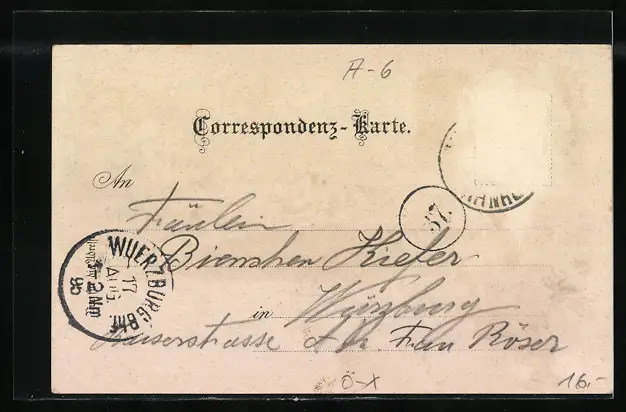 A-6
Correspondenz-Karte.
An
Fräulein
37.
Bienchen Kiefer
in Würzburg
Kaiserstrasse Frau Röser
WUERZBURG Bhf
17
AUG
2-3 Nm
95
Ö-X
16.-